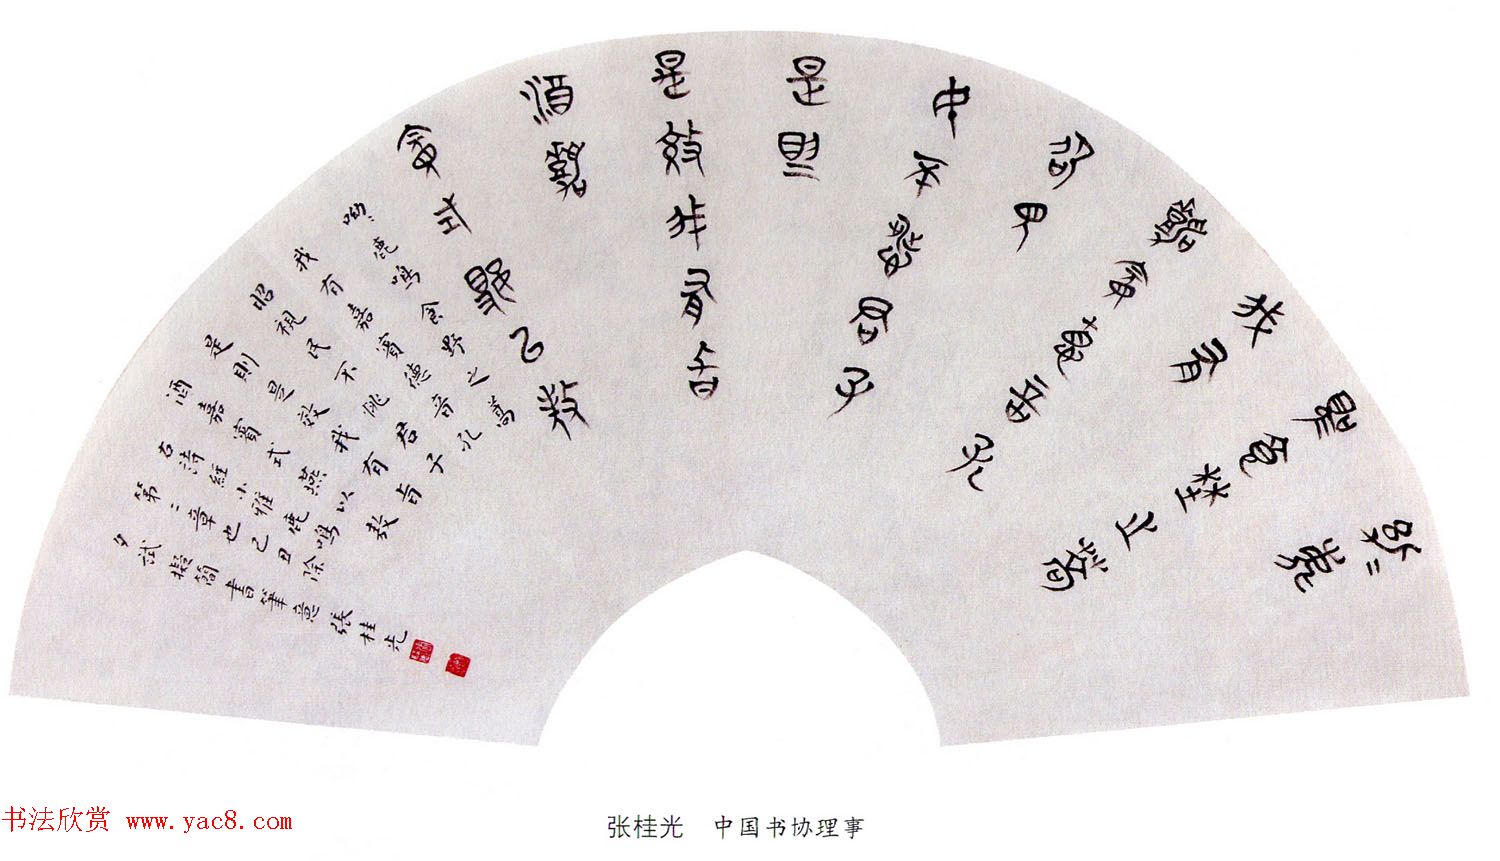 呦゠鹿
鳴食野之蒿
我有
嘉賓德音孔
昭視
民不恌君子
是則
是效我有旨
酒嘉
賓式燕以敖
呦゠鹿鳴食野之蒿
我有嘉賓德音孔
昭視民不恌君子
是則是效我有旨
酒嘉賓式燕以敖
右詩經小雅鹿鳴
第二章也己丑除
夕試擬簡書筆意張桂光
书法欣赏 www.yac8.com
张桂光 中国书协理事